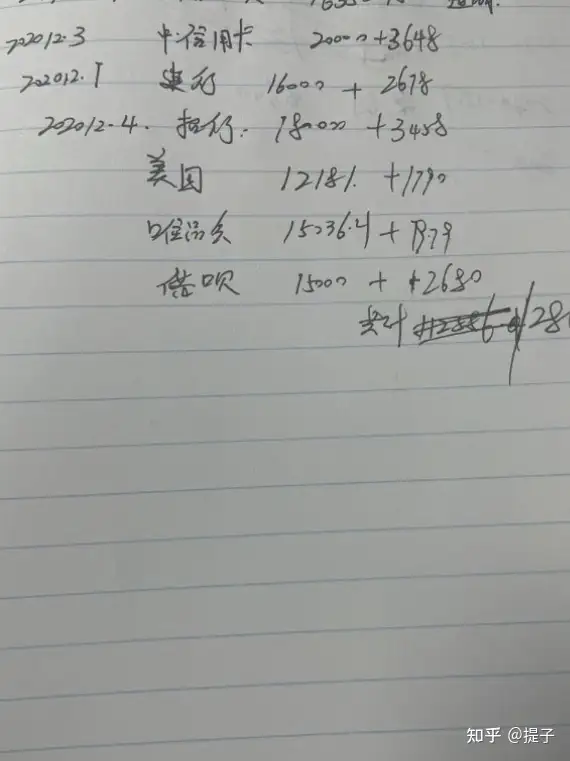 202012.3 中信用卡 20000+3648
202012.1 建行 16000 + 2678
202012.4. 招行. 18000 +3458
美团 12181. +1790
唯品会 15036.4 + 1379
借呗 15000 + 2680
共计 128
知乎 @提子